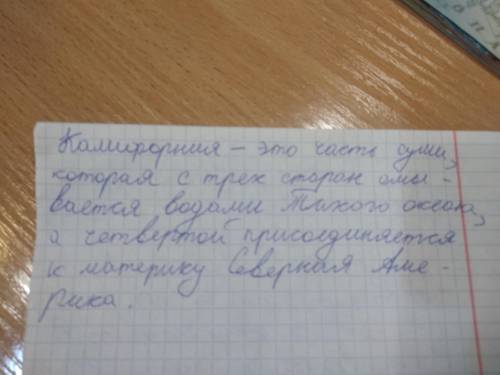 Калифорния – это часть суши,
которая с трех старан омы -
вается водами Тихого океана,
а четвертой присоединяется
к материку Северная Аме -
рика.